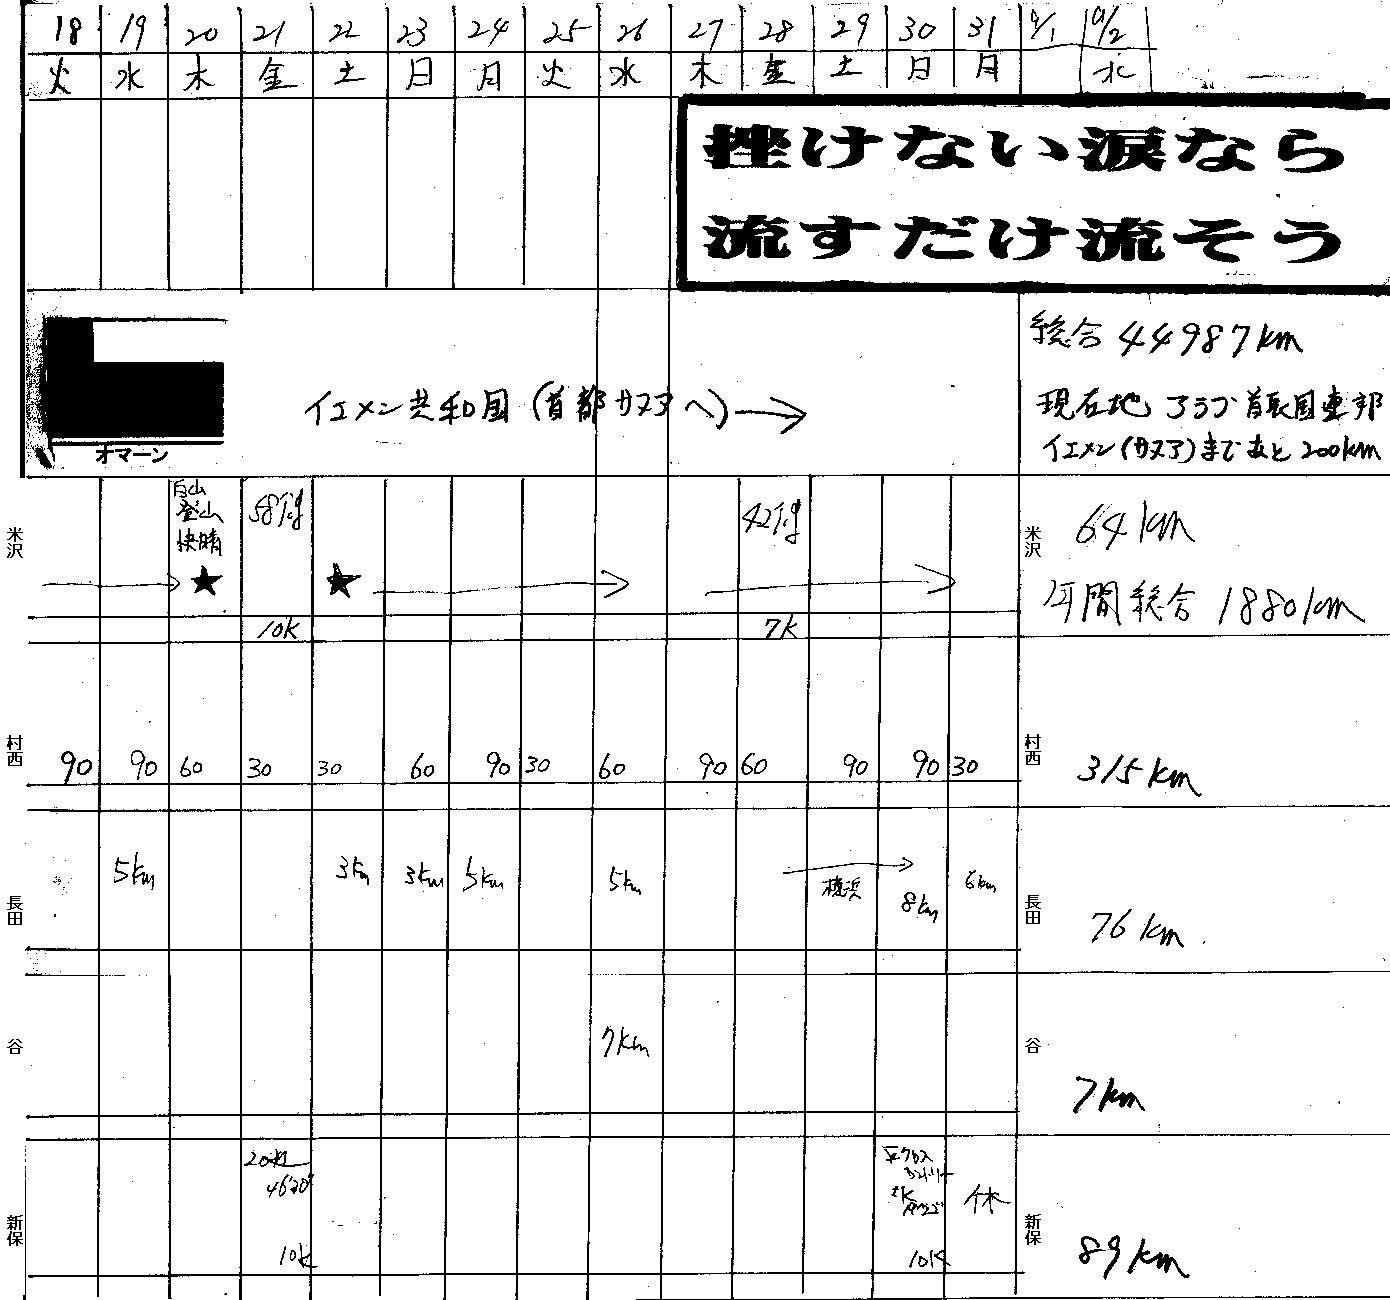 18 19 20 21 22 23 24 25 26 27 28 29 30 31 9/1 9/2
火 水 木 金 土 日 月 火 水 木 金 土 日 月 水
挫けない涙なら
流すだけ流そう
総合 44987km
イエメン共和国(首都サヌアへ)→
現在地 アラブ首長国連邦
イエメン(サヌア)まであと200km
オマーン
米沢
白山
登山
快晴
★ ★
58分
42分
10K 7K
米沢
64km
年間総合 1880km
村西
90 90 60 30 30 60 90 30 60 90 60 90 90 30
村西
315km
長田
5km 3km 3km 5km 5km
横浜
8km 6km
長田
76km
谷
7km
谷
7km
新保
46'20"
10K
10K
休
新保
89km